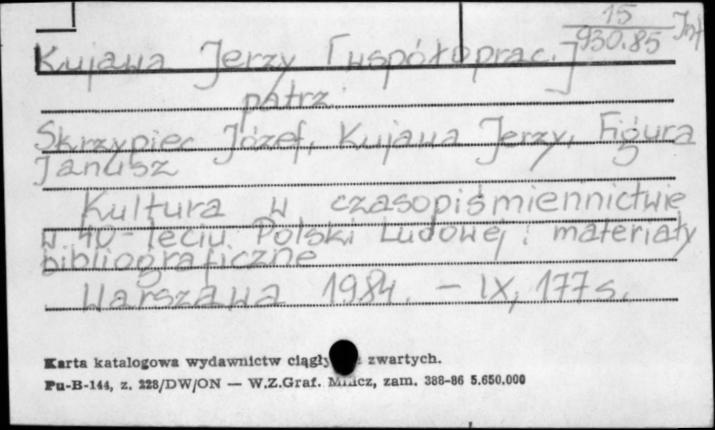 15 Inf
930.85
Kujawa Jerzy [współoprac.]
patrz
Skrzypiec Józef, Kujawa Jerzy, Figura
Janusz
Kultura w czasopiśmiennictwie
w 40-leciu Polski Ludowej : materiały
bibliograficzne
Warszawa 1984. - IX, 177 s.
Karta katalogowa wydawnictw ciągły zwartych.
Pu-B-144, z. 228/DW/ON — W.Z.Graf. zam. 388-86 5.650.000